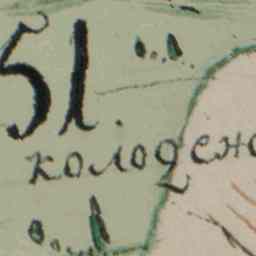 51.
колодено